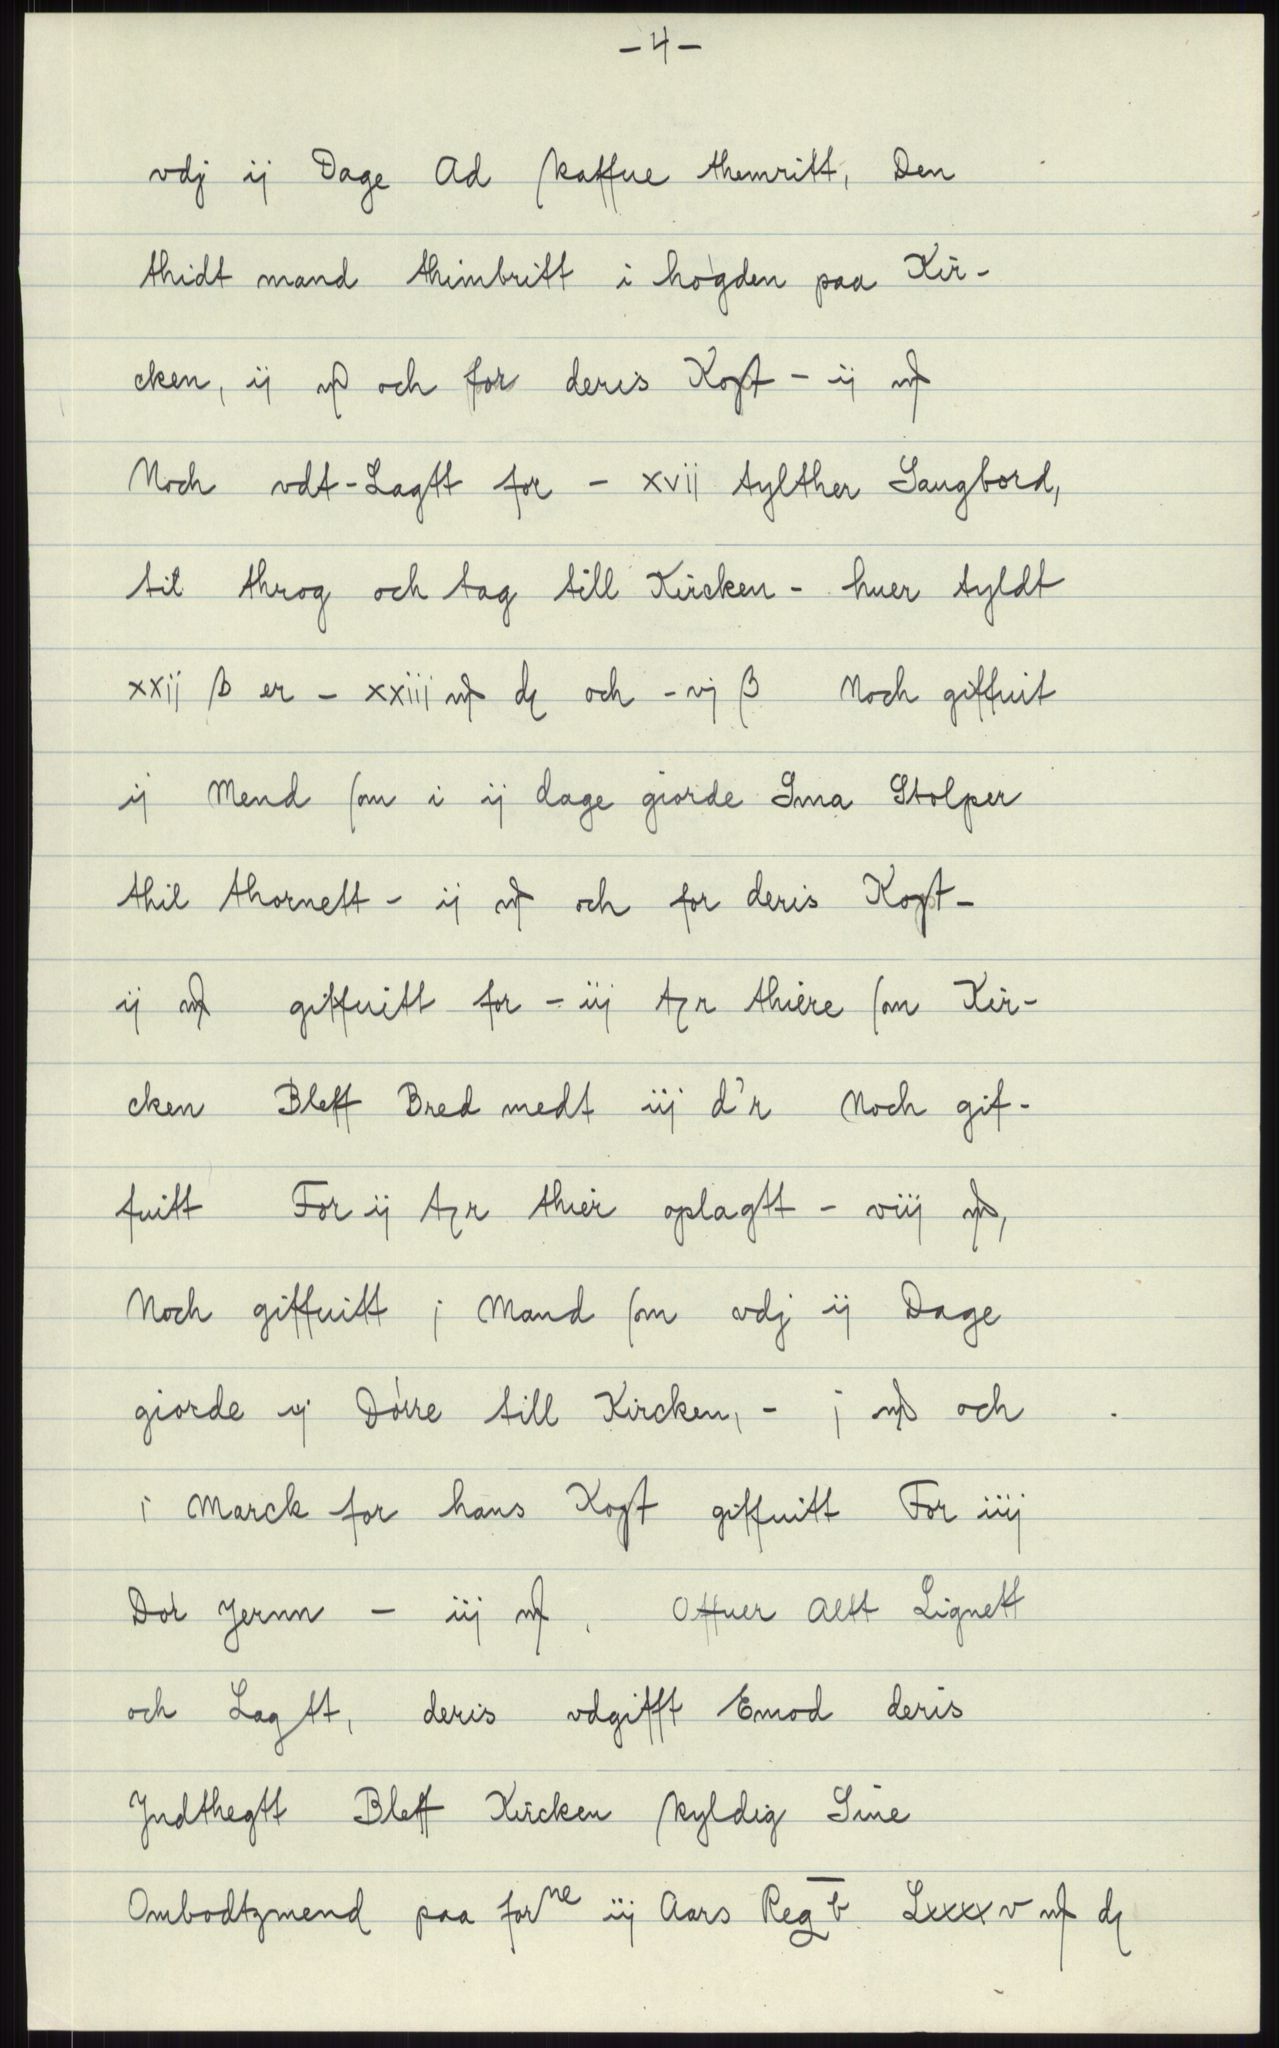 - 4 -
vdj ij Dage Ad skaffue themritt, Den
thidt mand thimbritt i høgden paa Kir-
cken, ij mk och for deris Kost - ij mk
Noch vdt-Lagtt for - xvij tylther Saugbord,
til throg och tag till Kircken - huer tyldt
xxij ß er - xxiij mk d och - vj ß Noch giffuit
ij Mend som i ij dage giorde Sma Stolper
thil thornett - ij mk och for deris Kost -
ij mk giffuitt for - iij tr thiere som Kir-
cken Bleff Bred medt iij d'r Noch gif-
fuitt For ij tr thier oplagtt - viij mk,
Noch giffuitt j Mand som vdj ij Dage
giorde ij Dørre till Kircken, - j mk och
i Marck for hans Kost giffuitt For iiij
Dør Jernn - iij mk. Offuer Altt Lignett
och Lagtt, deris vdgifft Emod deris
Jndthegtt Bleff Kircken skyldig Sine
Ombodtzmend paa forne iij Aars Regb Lxxxxv mk d